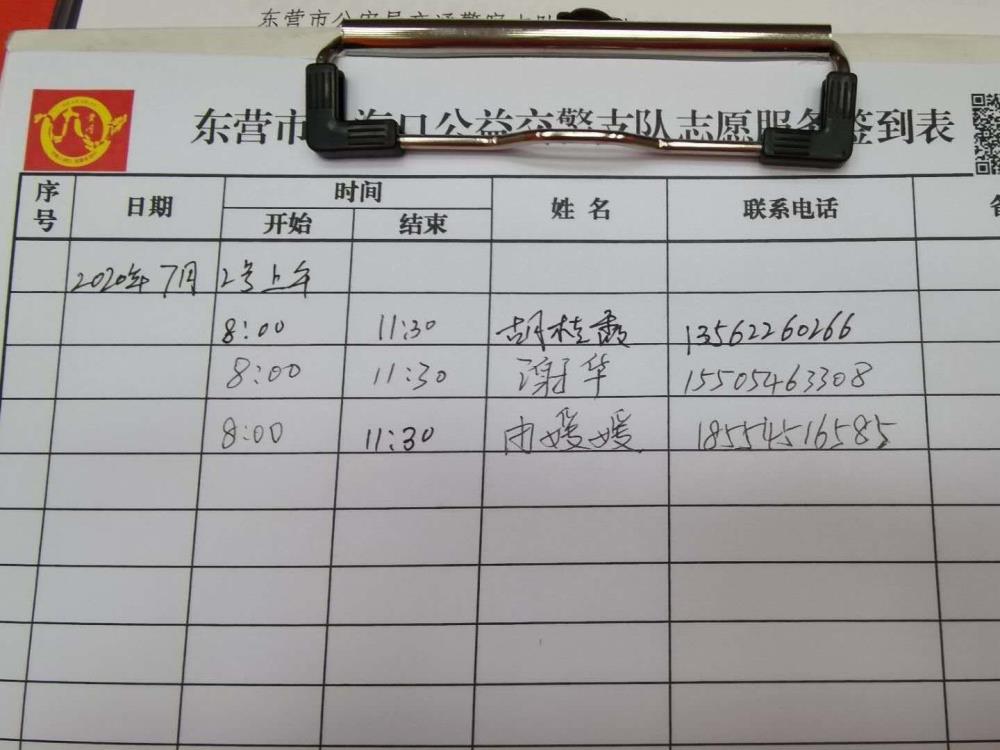 东营市公安局交通警察支队
东营市 海口公益交警支队志愿服务签到表
序号 日期 时间 姓名 联系电话
开始 结束
2020年7月2号上午
8:00 11:30 胡桂霞 13562260266
8:00 11:30 谢华 15505463308
8:00 11:30 由媛媛 18554516585